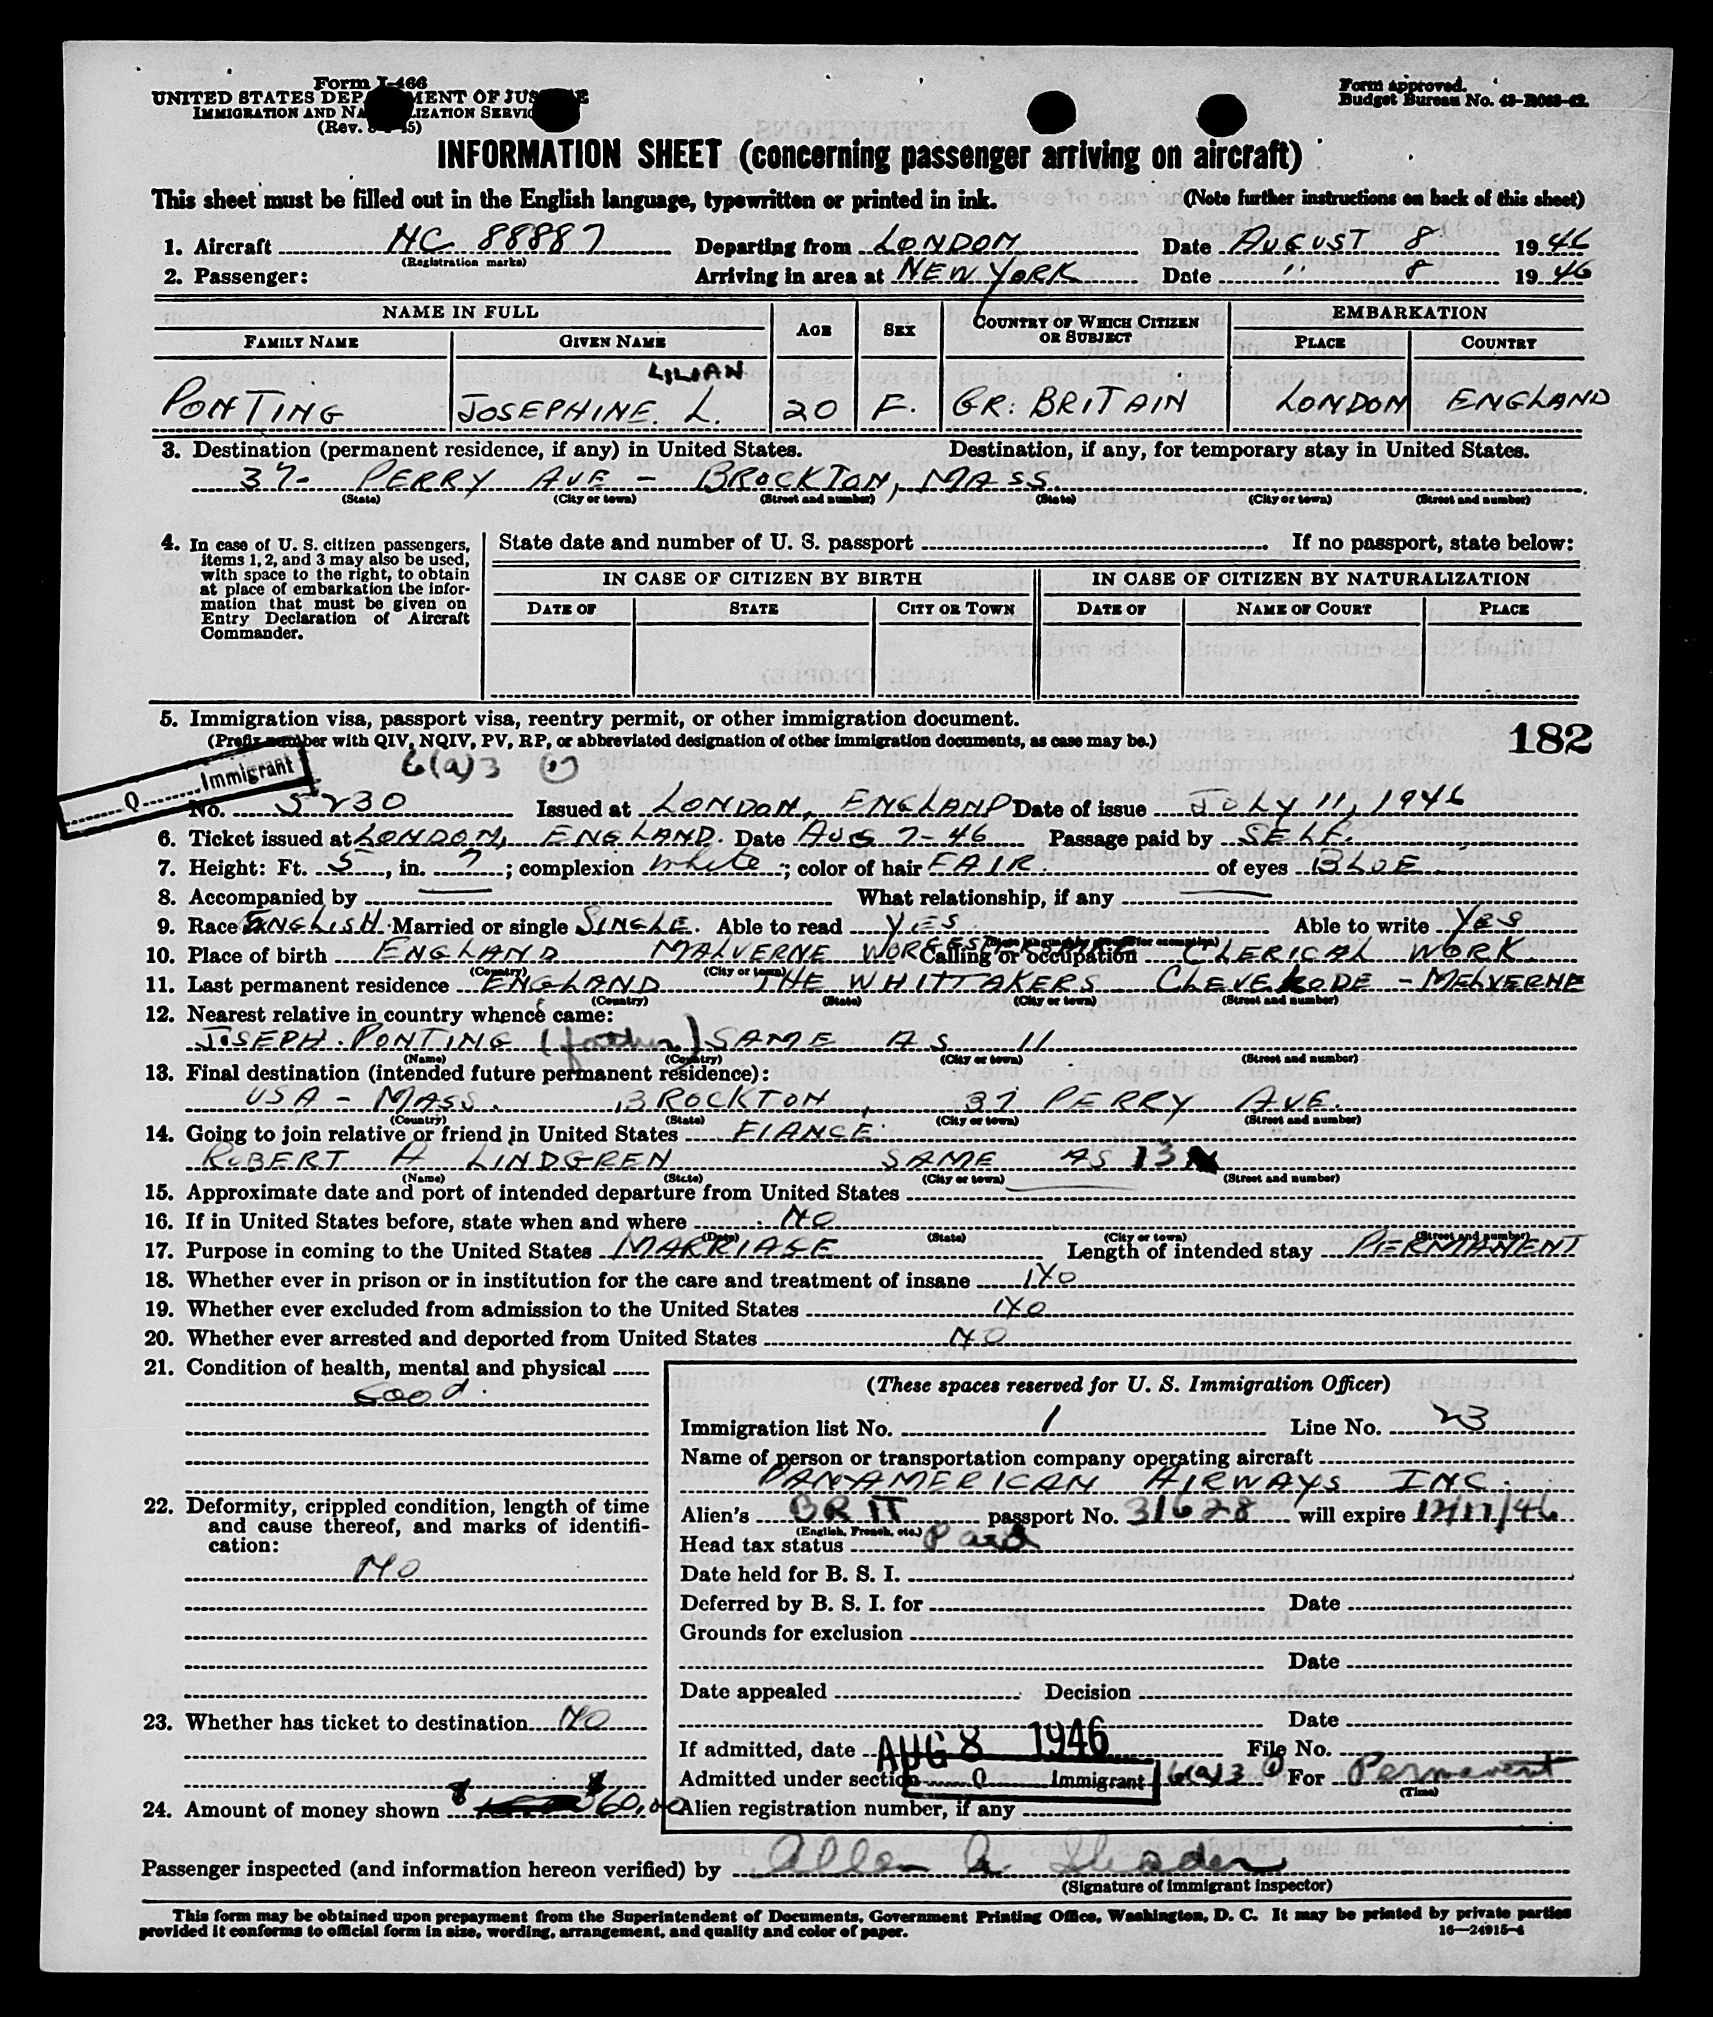 Form I-466
UNITED STATES DEPARTMENT OF JUSTICE
Form approved.
IMMIGRATION AND NATURALIZATION SERVICE
Budget Bureau No. 43-R063-42.
(Rev. 45)
INFORMATION SHEET (concerning passenger arriving on aircraft)
This sheet must be filled out in the English language, typewritten or printed in ink. (Note further instructions on back of this sheet)
1. Aircraft NC 88887 Departing from LONDON Date AUGUST 8 1946
(Registration marks)
2. Passenger: Arriving in area at NEW YORK Date " 8 1946
NAME IN FULL AGE SEX COUNTRY OF WHICH CITIZEN OR SUBJECT EMBARKATION
FAMILY NAME GIVEN NAME PLACE COUNTRY
LILIAN
PONTING JOSEPHINE. L. 20 F. GR: BRITAIN LONDON ENGLAND
3. Destination (permanent residence, if any) in United States. Destination, if any, for temporary stay in United States.
37- PERRY AVE - BROCKTON, MASS.
(State) (City or town) (Street and number) (State) (City or town) (Street and number)
4. In case of U. S. citizen passengers, items 1, 2, and 3 may also be used, with space to the right, to obtain at place of embarkation the information that must be given on Entry Declaration of Aircraft Commander.
State date and number of U. S. passport If no passport, state below:
IN CASE OF CITIZEN BY BIRTH IN CASE OF CITIZEN BY NATURALIZATION
DATE OF STATE CITY OR TOWN DATE OF NAME OF COURT PLACE
5. Immigration visa, passport visa, reentry permit, or other immigration document.
182
(Prefix number with QIV, NQIV, PV, RP, or abbreviated designation of other immigration documents, as case may be.)
Q Immigrant 6(a)3
No. 5230 Issued at LONDON, ENGLAND Date of issue JULY 11, 1946
6. Ticket issued at LONDON, ENGLAND. Date AUG 7-46 Passage paid by SELF.
7. Height: Ft. 5, in. 7; complexion White; color of hair FAIR. of eyes BLUE
8. Accompanied by — What relationship, if any —
9. Race ENGLISH Married or single SINGLE. Able to read YES Able to write Yes
10. Place of birth ENGLAND MALVERNE WORCESTERSHIRE Calling or occupation CLERICAL WORK
(Country) (City or town)
11. Last permanent residence ENGLAND THE WHITTAKERS CLEVELODE - MELVERNE
(Country) (State) (City or town) (Street and number)
12. Nearest relative in country whence came:
JOSEPH. PONTING (father) SAME AS 11
(Name) (Country) (City or town) (Street and number)
13. Final destination (intended future permanent residence):
USA - MASS. BROCKTON, 37 PERRY AVE.
(Country) (State) (City or town) (Street and number)
14. Going to join relative or friend in United States FIANCE
ROBERT A LINDGREN SAME AS 13
(Name) (State) (City or town) (Street and number)
15. Approximate date and port of intended departure from United States —
16. If in United States before, state when and where NO
(Date) (State) (City or town) (Street and number)
17. Purpose in coming to the United States MARRIAGE Length of intended stay PERMANENT
18. Whether ever in prison or in institution for the care and treatment of insane NO
19. Whether ever excluded from admission to the United States NO
20. Whether ever arrested and deported from United States NO
21. Condition of health, mental and physical
Good.
22. Deformity, crippled condition, length of time and cause thereof, and marks of identification:
NO
23. Whether has ticket to destination NO
24. Amount of money shown $60.00
(These spaces reserved for U. S. Immigration Officer)
Immigration list No. 1 Line No. 23
Name of person or transportation company operating aircraft
PANAMERICAN AIRWAYS INC.
Alien's BRIT passport No. 31628 will expire 12/17/46
(English, French, etc.)
Head tax status Paid
Date held for B. S. I.
Deferred by B. S. I. for Date
Grounds for exclusion
Date
Date appealed Decision
Date
If admitted, date AUG 8 1946 File No.
Admitted under section Q Immigrant 6(a)3 For Permanent
(Time)
Alien registration number, if any
Passenger inspected (and information hereon verified) by Allen A.
(Signature of immigrant inspector)
This form may be obtained upon prepayment from the Superintendent of Documents, Government Printing Office, Washington, D. C. It may be printed by private parties
provided it conforms to official form in size, wording, arrangement, and quality and color of paper.
16—24915-4